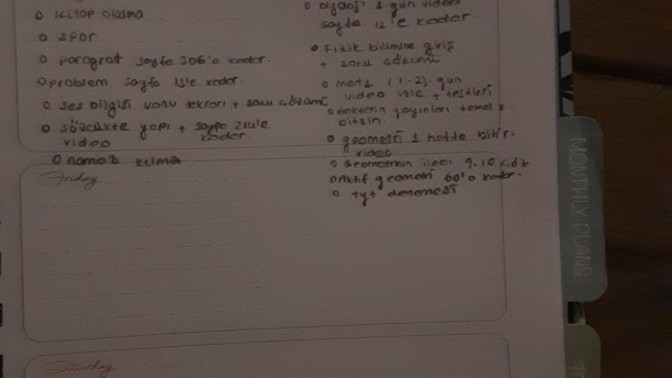 kitap okuma
spor
paragraf sayfa 306'e kadar.
problem sayfa 13'e kadar.
ses bilgisi konu tekrarı + soru çözümü
sözcükte yapı + sayfa 210'e
video kadar.
namaz kılma
1 gün video
sayfa 12'e kadar
Fizik bilimine giriş
+ soru çözümü
mat 1 (1-2). gün
video izle + testleri
yayınları temel k.
bitsin.
geometri 1 hafta bitir.
video
Geometrinin ilacı 9.10 çöz
Aktif geometri 60'a kadar.
tyt denemesi
Friday
Saturday
MONTHLY PLANS